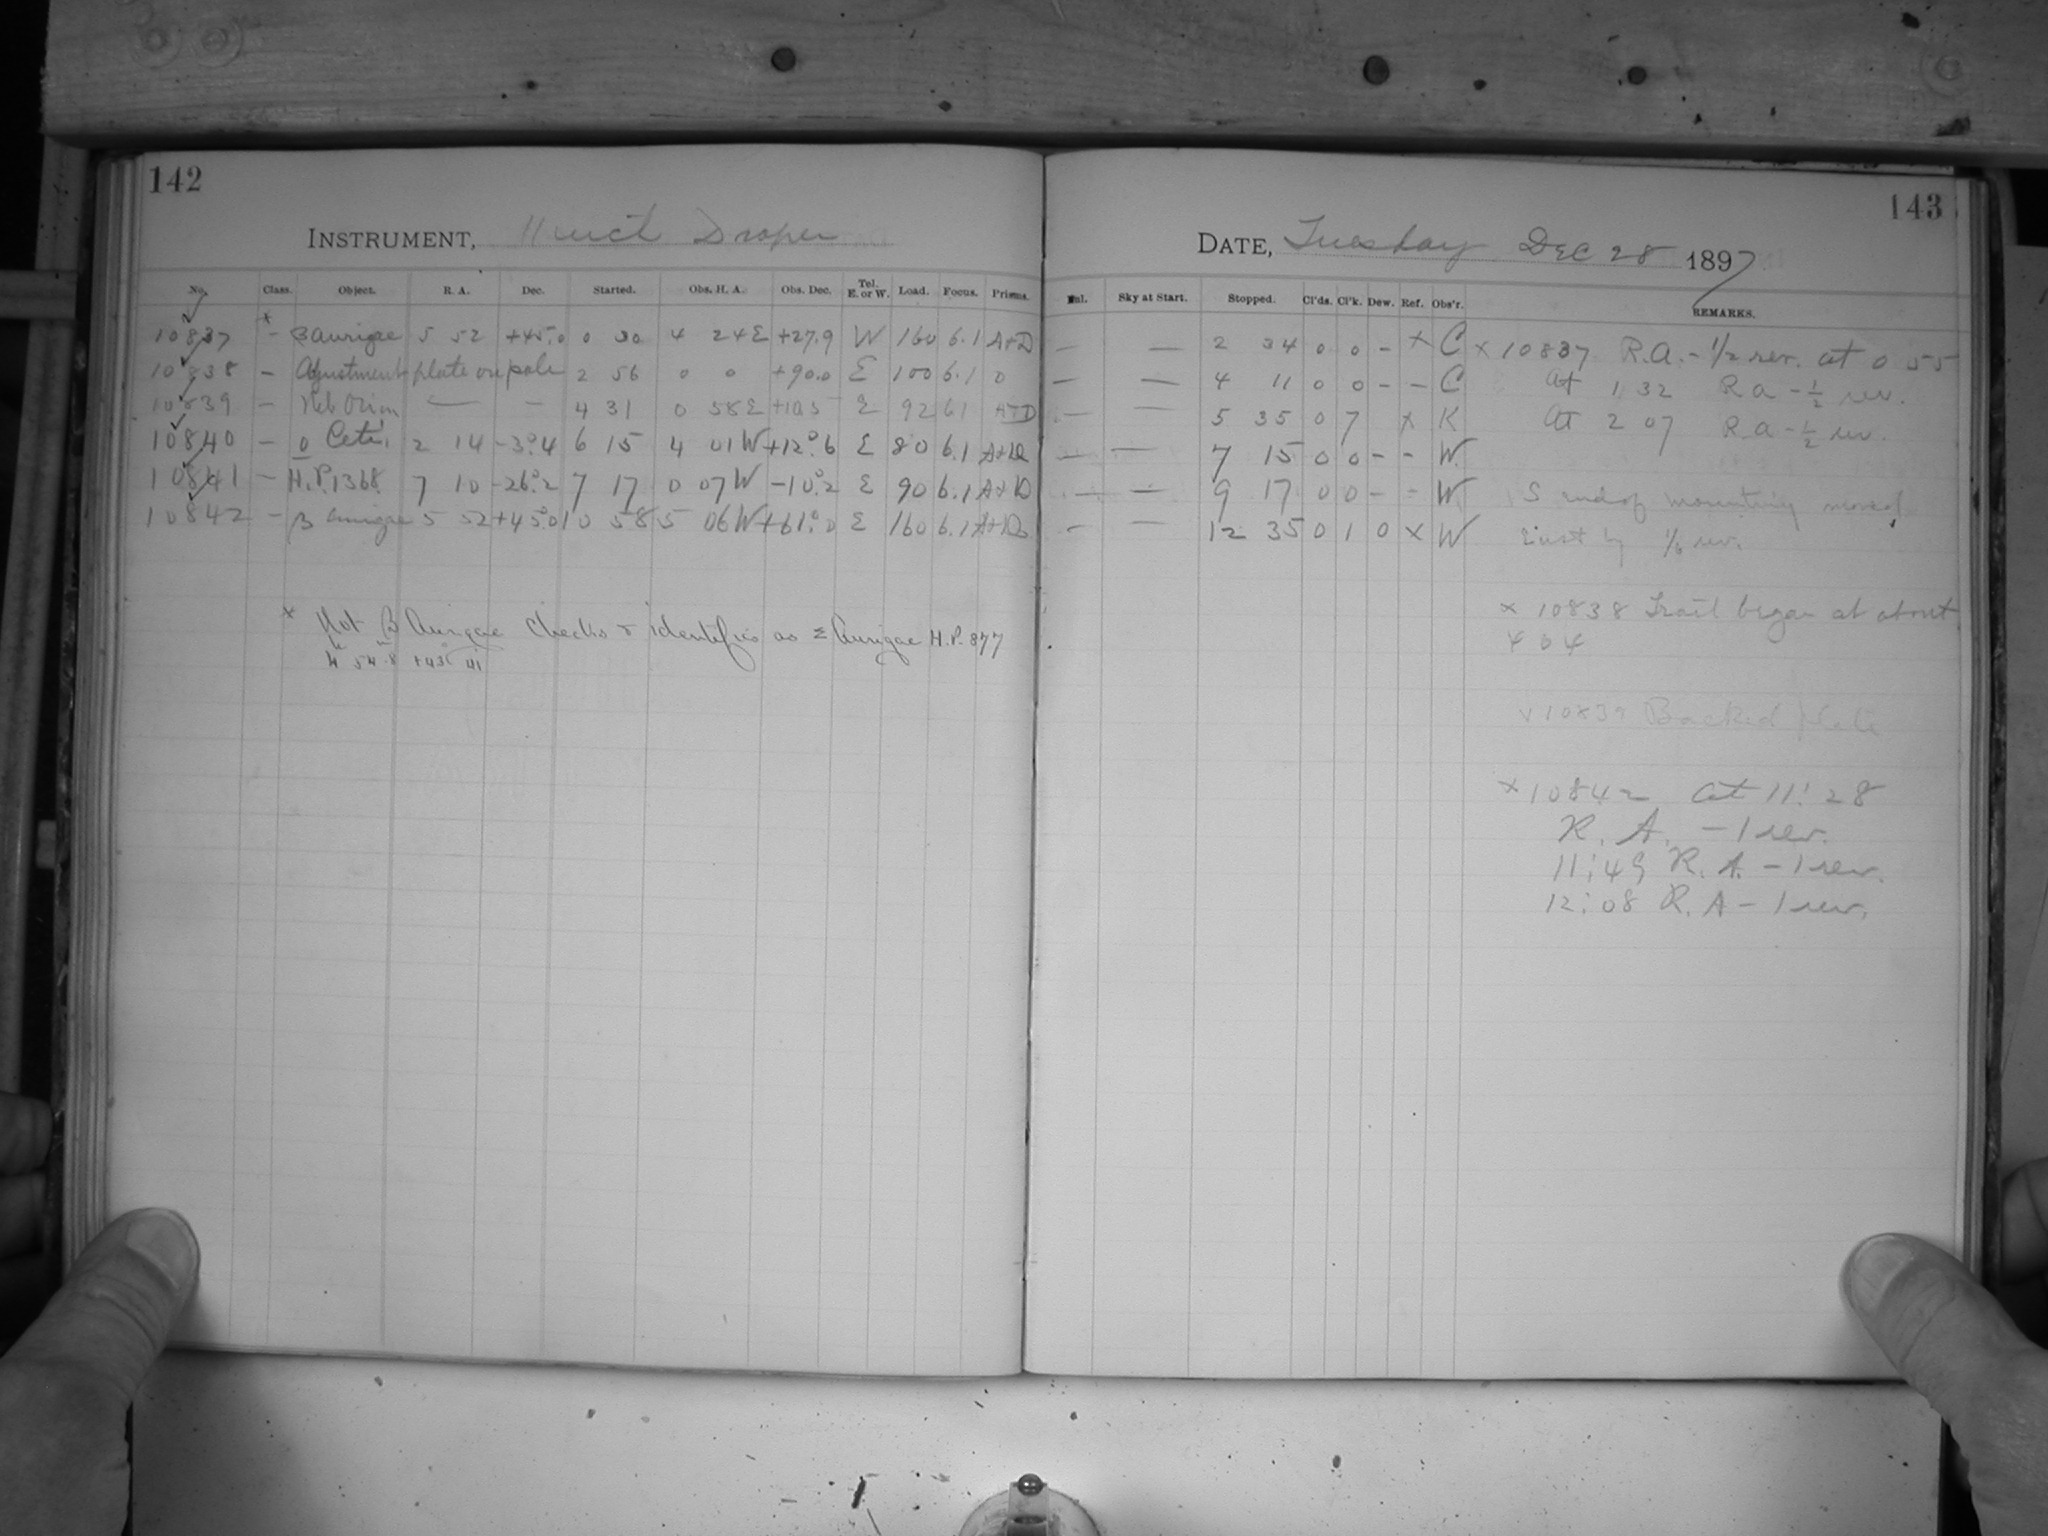 142
INSTRUMENT, 11 inch Draper
No. Class. Object. R. A. Dec. Started. Obs. H. A. Obs. Dec. Tel. E. or W. Load. Focus. Prisms.
10837 x - β Aurigae 5 52 +45.0 0 30 4 24 E +27.9 W 160 6.1 A+D
10838 - Adjustment plate on pole 2 56 0 0 +90.0 E 100 6.1 0
10839 - Neb Orion — - 4 31 0 58 E +10.5 E 92 6.1 A+D
10840 - o Ceti 2 14 -3°.4 6 15 4 01 W +12°.6 E 80 6.1 A+D
10841 - H.P. 1368 7 10 -26°.2 7 17 0 07 W -10°.2 E 90 6.1 A+D
10842 - β Aurigae 5 52 +45°.0 10 58 5 06 W +61°.0 E 160 6.1 A+D
x Not β Aurigae Checks & identifies as ε Aurigae H.P. 877
4h 54m.8 +43° 41'
143
DATE, Tuesday Dec 28 1897
Sky at Start. Stopped. Cl'ds. Cl'k. Dew. Ref. Obs'r. REMARKS.
— — 2 34 0 0 - x C x 10837 R.A. - 1/2 rev. at 0 55
— — 4 11 0 0 - - C At 1 32 R a - 1/2 rev.
- — 5 35 0 7 x K At 2 07 R a - 1/2 rev.
— — 7 15 0 0 - - W.
— — 9 17 0 0 - - W S end of mounting moved
- — 12 35 0 1 0 x W East by 1/6 rev.
x 10838 Trail began at about
4 04
x 10839 Backed plate
x 10842 at 11:28
R. A. - 1 rev.
11:49 R. A. - 1 rev.
12:08 R. A - 1 rev.